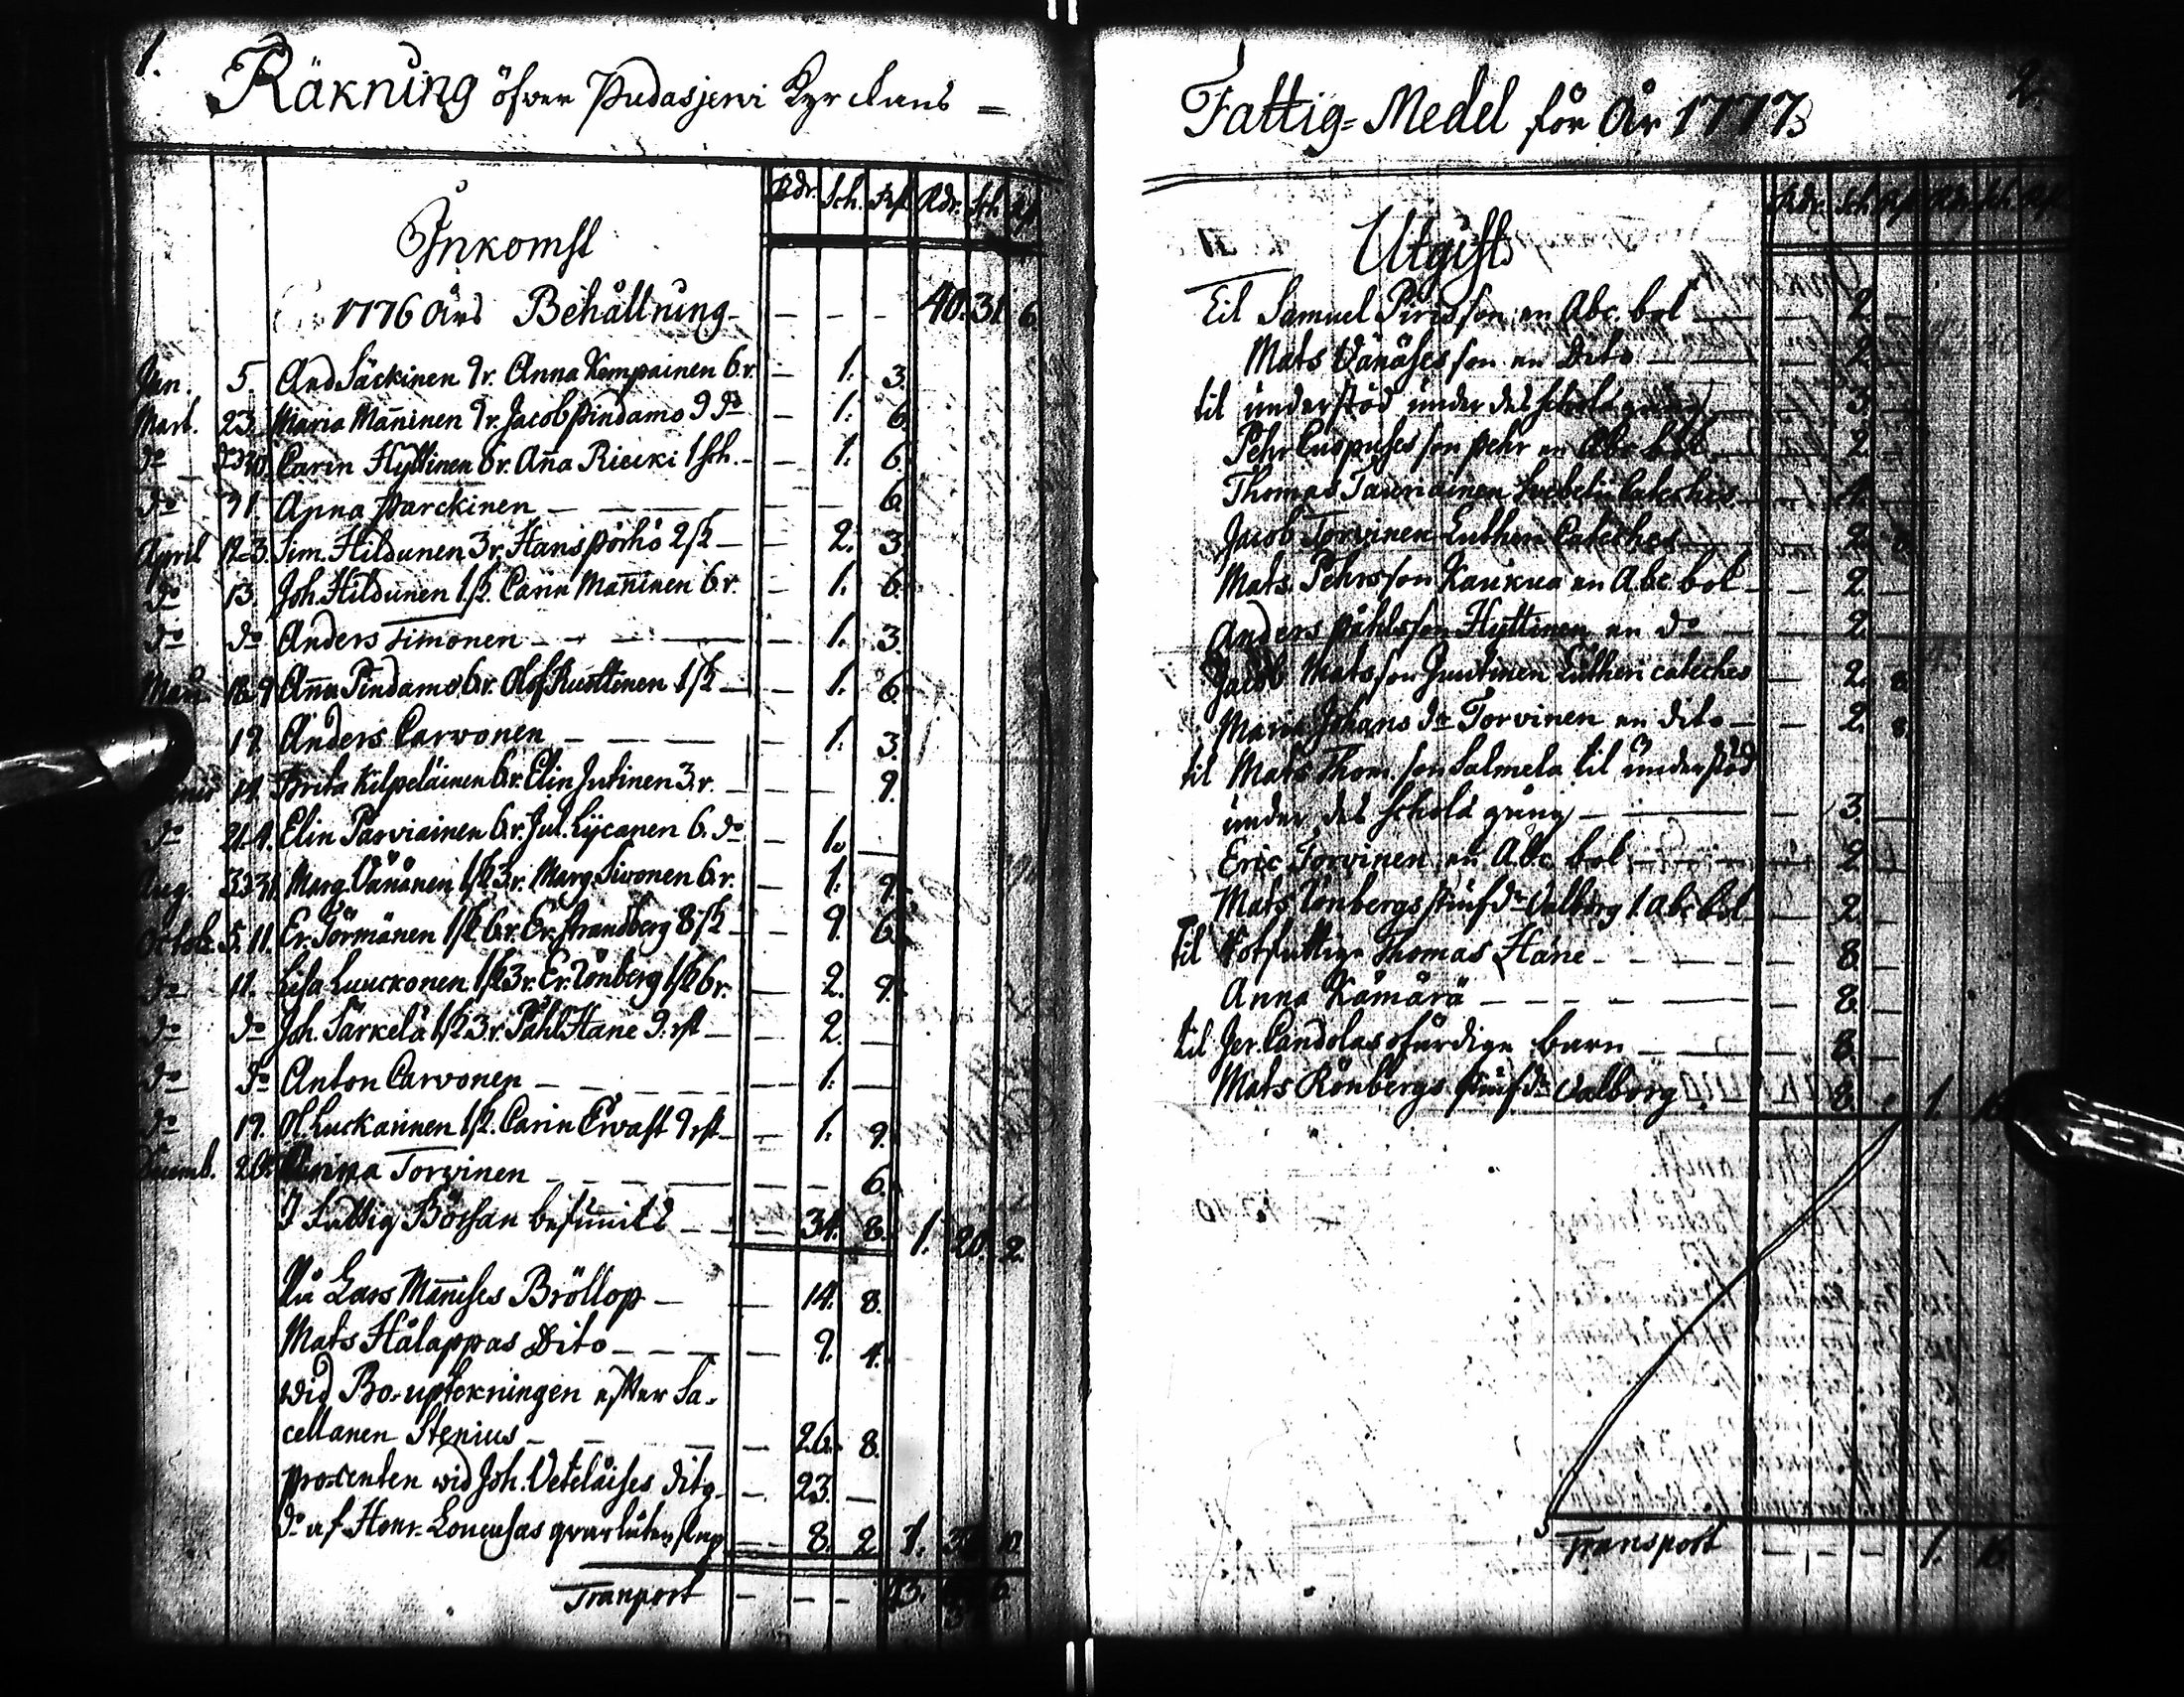 1.
Räkning öfver Pudasjervi Kyrckans =
Rdr. Sch. Rst. Rdr. Sch. Rst
Inkomst
1776 Års Behållning - - - - 40. 31. 6.
Jan. 5. And Säckinen 9 r. Anna Kempainen 6.r. - 1. 3.
Mart. 23. Maria Mañinen 9 r. Jacob Pindamo 9 d:o - 1. 6.
d:o Carin Hyttinen 6r. Aña Riecki 1 sch. - - 1. 6.
d:o 31. Anna Parckinen - - - - 6.
April 12.3. Sim. Hildunen 3r. Hans Pörhö 2 sk - - 2. 3.
d:o 13. Joh. Hildunen 1 sk. Carin Mañinen 6 r. - 1. 6.
d:o d:o Anders Timonen - - - - 1. 3.
Maii 18.9 Aña Pindamo 6r. Olof Rusttinen 1 sk - - 1. 6.
19. Anders Carvonen - - - - 1. 3.
14. Brita Kilpeläinen 6r. Elin Jutinen 3.r. - - - 9.
d:o 21.4. Elin Parviainen 6.r. Jul. Lycanen 6. d:o - 1. -
Aug. 3.31. Marg. Vänänen 1 sk 3 r. Marg. Sivonen 6.r. - 1. 9.
Octob. 5. 11. Er. Törmänen 1 sk 6.r. Er. Strandberg 8 sk - - 9. 6.
d:o 11. Lisa Luuckonen 1 sk 3r. Er. Rönberg 1 sk 6r. - 2. 9.
d:o d:o Joh. Särkelä 1 sk 3.r. Påhl Hane 9. rst - - 2. -
d:o d:o Anton Carvonen - - - - 1. -
d:o 19. Ol. Luckarinen 1 sk. Carin Ervast 9 rst - - 1. 9.
Decemb. 26. Torvinen - - - - - 6.
I Fattig Bössan befuñits - - - 34. 8. 1. 20. 2.
På Lars Mañises Bröllop - - 14. 8.
Mats Hålappas Dito - - - - 9. 4.
wid Bo-upteckningen efter Sa-
cellanen Stenius - - - - 26. 8.
procenten wid Joh. Veteläises dito - - 23. -
d:o af Henr. Lonuhsas qvarlåtenskap - - 8. 2
Tranport - - - 43.
2.
Fattig-Medel för År 1777.
Rdr. Sch. Rst. Rdr. Sch. Rst.
Utgift
Til Samuel Pirisson en Abc. bok - - 2. -
Mats Vänäses son en Dito - - 2. -
til understöd under des schola gång - 3. -
Pehr son Pehr en Abc bok - 2. -
Thomas Tauriainen Svebelii Cateches - 4. -
Jacob Torvinen Lutheri Cateches - 2. 8.
Mats Pehrsson Kaukua en Abc bok - - 2. -
Anders Påhlsson Hyttinen en d:o - - 2. -
Jacob Matsson Juutinen Lutheri cateches - 2. 8.
Maria Johans d:r Torvinen en dito - - 2. 8.
til Mats Thom. son Salmela til understöd
under des schola gång - - 3. -
Eric Torvinen en Abc bok - - 2. -
Mats Rönbergs stiufd:r Valborg 1 Abc bok - 2. -
Til Rotfattige Thomas Hane - - - - 8. -
Anna Kämärä - - - - 8. -
til Jer. Candolas ofärdige barn - - - 8. -
Mats Rönbergs stiufd:r Valborg 8. - 1. 16
Transport - - - 1. 16